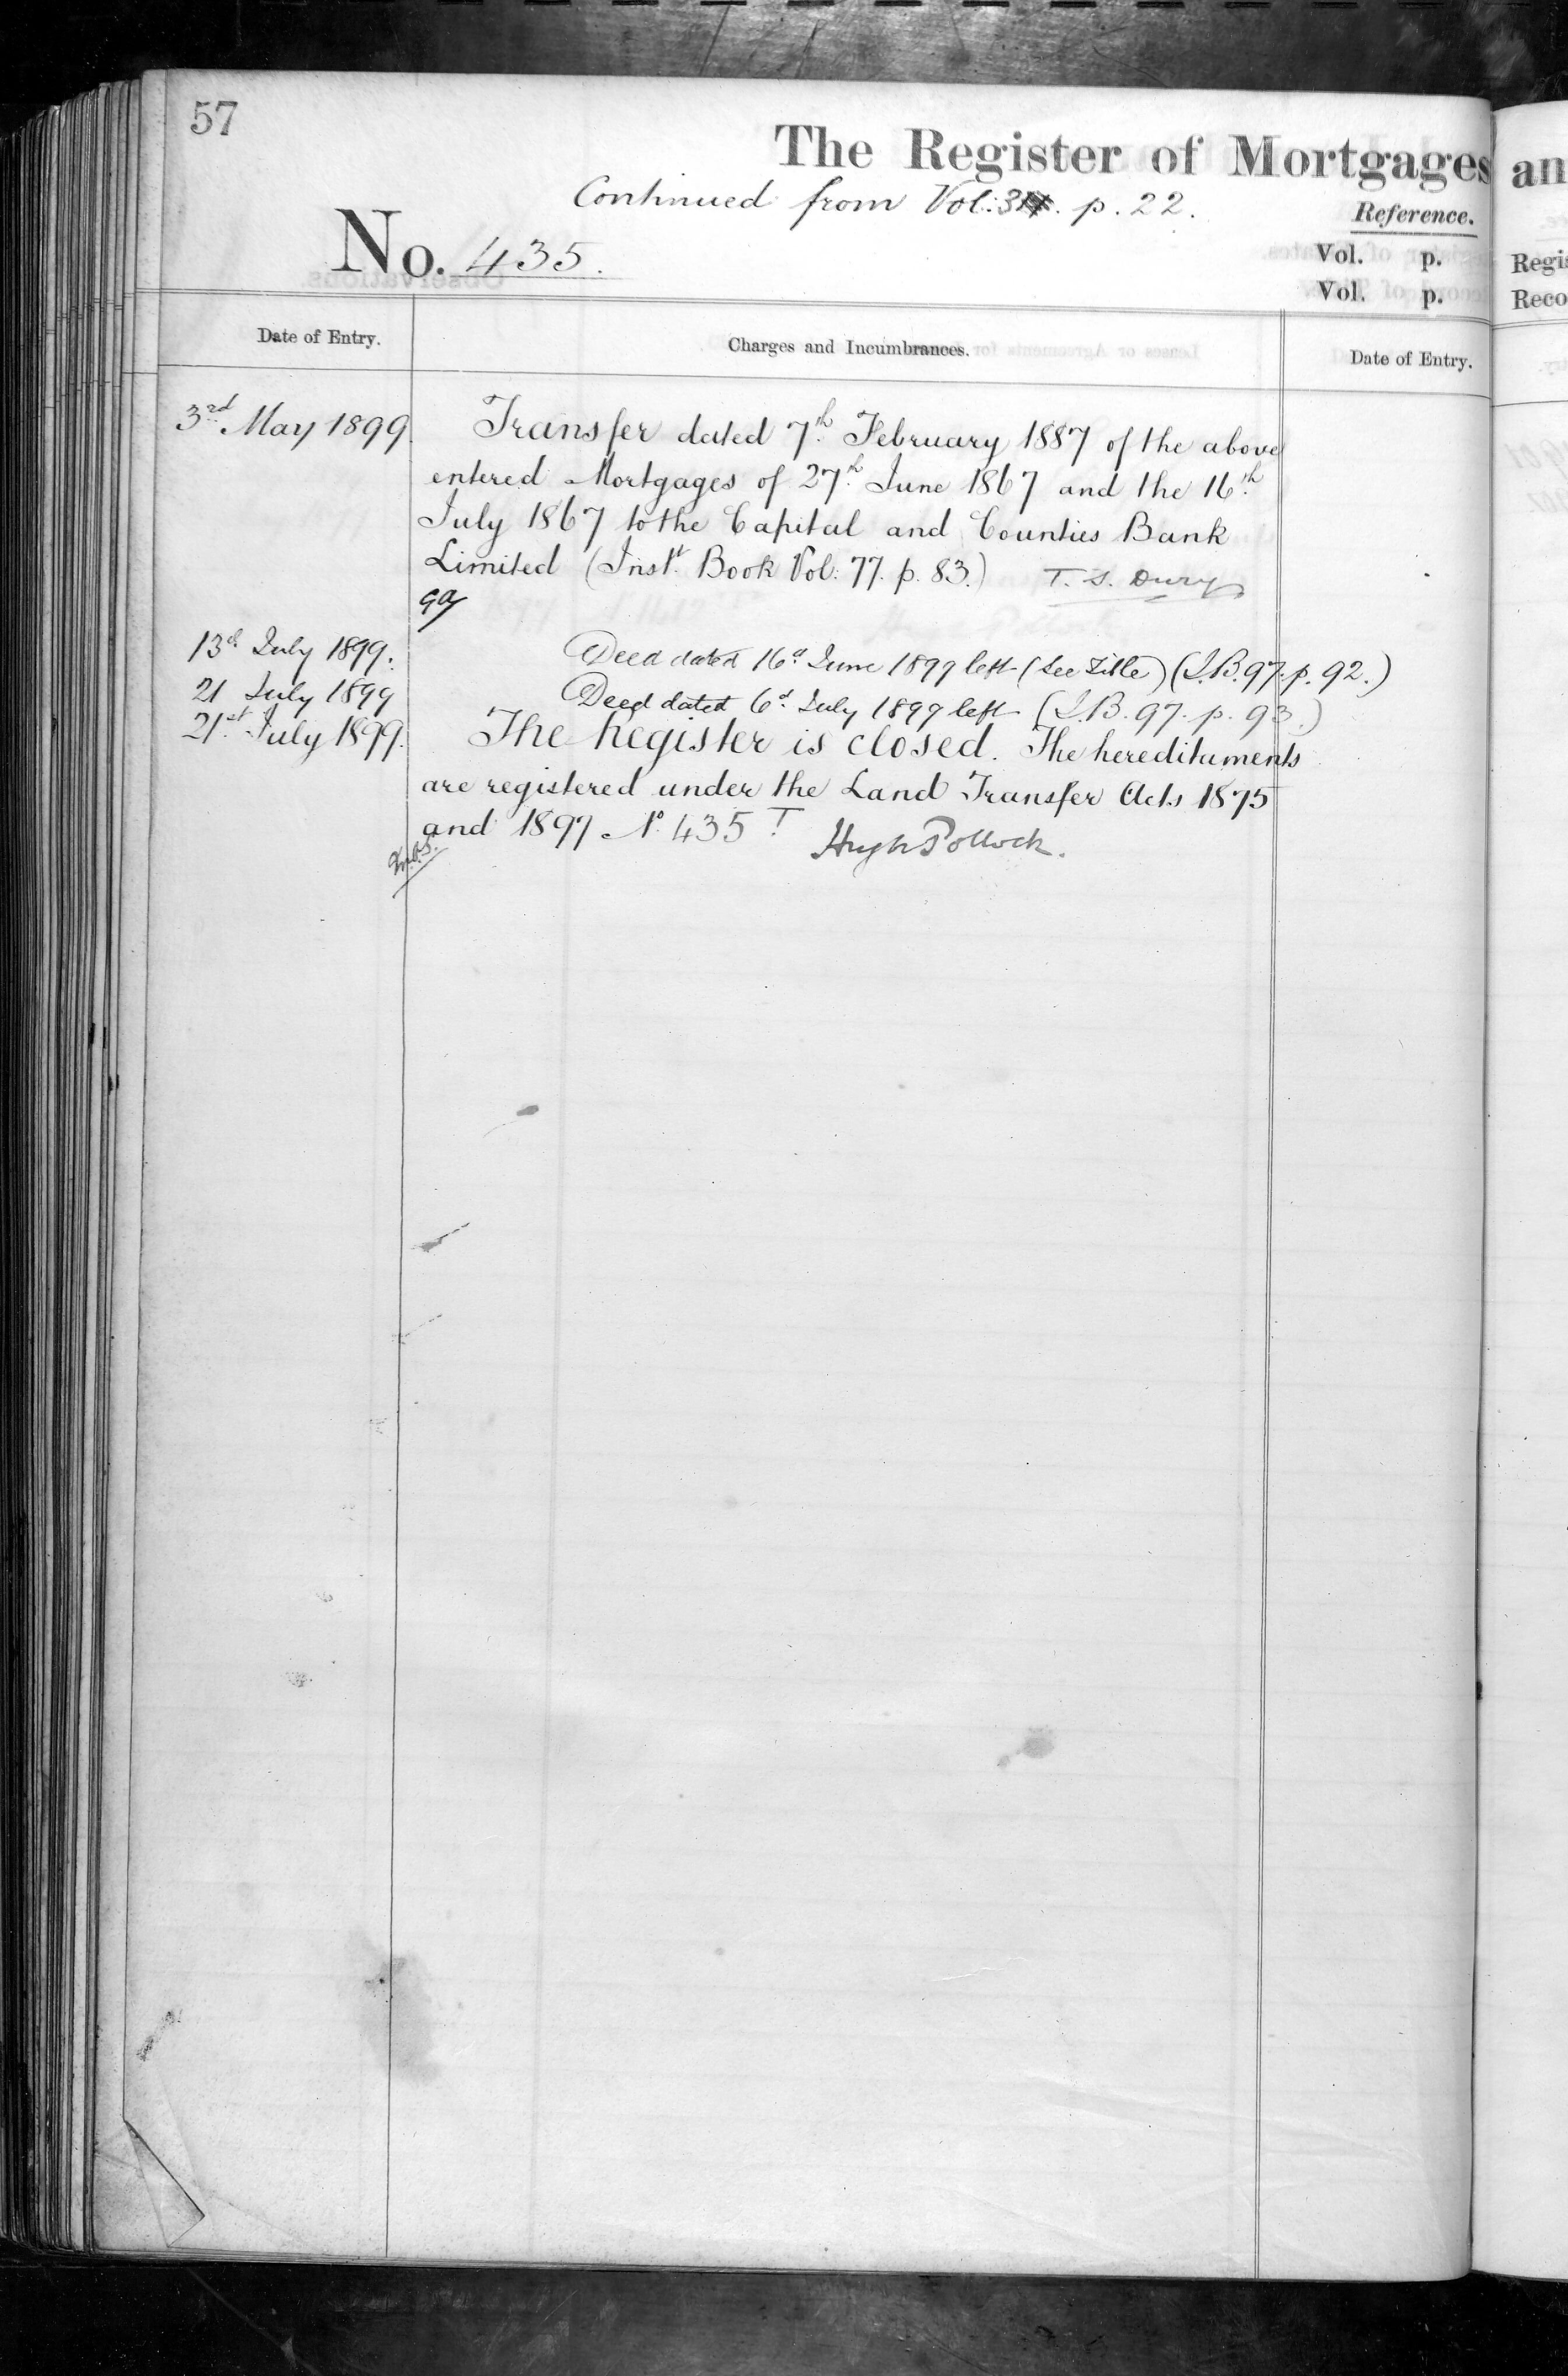 57
The Register of Mortgages an
Continued from Vol: 3 . p. 22.
Reference.
No. 435.
Vol. p. Regis
Vol. p. Reco
Date of Entry. Charges and Incumbrances. Date of Entry.
3rd May 1899. Transfer dated 7th February 1887 of the above
entered Mortgages of 27th June 1867 and the 16th
July 1867 to the Capital and Counties Bank
Limited (Inst. Book Vol: 77. p. 83.) T. S. Dury
13th July 1899. Deed dated 16th June 1899 left (See Title) (I.B. 97. p. 92.)
21 July 1899 Deed dated 6th July 1899 left (I.B. 97. p. 93.)
21st July 1899. The Register is closed. The hereditaments
are registered under the Land Transfer Acts 1875
and 1897 No. 435 T. Hugh Pollock.